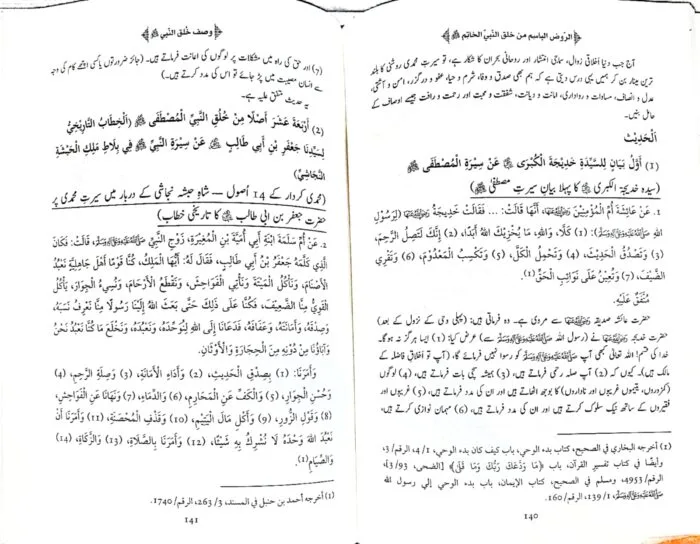 الروض الباسم من خلق النبي الخاتم ﷺ
آج جب دنیا اخلاقی زوال، سماجی انتشار اور روحانی بحران کا شکار ہے، تو سیرتِ محمدی روشنی کا بلند
ترین مینار بن کر ہمیں یہی درس دیتی ہے کہ ہم بھی صدق و وفا، شرم و حیا، عفو و درگزر، امن و آشتی،
عدل و انصاف، مساوات و رواداری، امانت و دیانت، شفقت و محبت اور رحمت و رافت جیسے اوصاف کے
حامل بنیں۔
اَلْحَدِیْث
(1) أَوَّلُ بَيَانٍ لِلسَّيِّدَةِ خَدِيْجَةَ الْكُبْرَى عَنْ سِيْرَةِ الْمُصْطَفَى ﷺ
(سیدہ خدیجۃ الکبریٰ کا پہلا بیانِ سیرتِ مصطفیٰ ﷺ)
1. عَنْ عَائِشَةَ أُمِّ الْمُؤْمِنِيْنَ، أَنَّهَا قَالَتْ: ... فَقَالَتْ خَدِيْجَةُ لِرَسُوْلِ
اللهِ ﷺ: (1) كَلَّا، وَاللهِ، مَا يُخْزِيْكَ اللهُ أَبَدًا، (2) إِنَّكَ لَتَصِلُ الرَّحِمَ،
(3) وَتَصْدُقُ الْحَدِيْثَ، (4) وَتَحْمِلُ الْكَلَّ، (5) وَتَكْسِبُ الْمَعْدُوْمَ، (6) وَتَقْرِي
الضَّيْفَ، (7) وَتُعِيْنُ عَلَى نَوَائِبِ الْحَقِّ (1).
مُتَّفَقٌ عَلَيْهِ.
حضرت عائشہ صدیقہ سے مروی ہے۔ وہ فرماتی ہیں: (پہلی وحی کے نزول کے بعد)
حضرت خدیجہ نے (رسول اللہ ﷺ سے) عرض کیا: (1) ایسا ہرگز نہ ہوگا۔
خدا کی قسم! اللہ تعالیٰ کبھی آپ ﷺ کو رسوا نہیں فرمائے گا۔ (آپ تو اخلاقِ فاضلہ کے
مالک ہیں)۔ کیوں کہ (2) آپ صلہ رحمی فرماتے ہیں، (3) ہمیشہ سچی بات فرماتے ہیں، (4)
(کمزوروں، یتیموں غریبوں اور ناداروں) کا بوجھ اٹھاتے ہیں اور ان کی مدد کرتے ہیں، (5) غریبوں اور
فقیروں کے ساتھ نیک سلوک کرتے ہیں اور ان کی مدد فرماتے ہیں، (6) مہمان نوازی کرتے ہیں،
(1) أخرجه البخاري في الصحيح، كتاب بدء الوحي، باب كيف كان بدء الوحي، 1/4، الرقم/3،
وأيضًا في كتاب تفسير القرآن، باب ﴿مَا وَدَّعَكَ رَبُّكَ وَمَا قَلَى﴾ [الضحى، 93/3]،
الرقم/4953، ومسلم في الصحيح، كتاب الإيمان، باب بدء الوحي إلى رسول الله
ﷺ، 1/139، الرقم/160.
140
وصف خُلق النبي ﷺ
(7) اور حق کی راہ میں مشکلات پر لوگوں کی اعانت فرماتے ہیں۔ (جائز ضرورتوں یا کسی اچھے کام کی وجہ
سے انسان مصیبت میں پڑ جائے تو اس کی مدد کرتے ہیں۔)
یہ حدیث متفق علیہ ہے۔
(2) أَرْبَعَةَ عَشَرَ أَصْلًا مِنْ خُلُقِ النَّبِيِّ الْمُصْطَفَى ﷺ (الْخِطَابُ التَّارِيْخِيُّ
لِسَيِّدِنَا جَعْفَرِ بْنِ أَبِي طَالِبٍ عَنْ سِيْرَةِ النَّبِيِّ ﷺ فِي بِلَاطِ مَلِكِ الْحَبَشَةِ
النَّجَاشِيِّ)
(محمدی کردار کے 14 اُصول – شاہِ حبشہ نجاشی کے دربار میں سیرتِ محمدی پر
حضرت جعفر بن ابی طالب کا تاریخی خطاب)
2. عَنْ أُمِّ سَلَمَةَ ابْنَةِ أَبِي أُمَيَّةَ بْنِ الْمُغِيْرَةِ، زَوْجِ النَّبِيِّ ﷺ، قَالَتْ: فَكَانَ
الَّذِي كَلَّمَهُ جَعْفَرُ بْنُ أَبِي طَالِبٍ، فَقَالَ لَهُ: أَيُّهَا الْمَلِكُ، كُنَّا قَوْمًا أَهْلَ جَاهِلِيَّةٍ نَعْبُدُ
الْأَصْنَامَ، وَنَأْكُلُ الْمَيْتَةَ وَنَأْتِي الْفَوَاحِشَ، وَنَقْطَعُ الْأَرْحَامَ، وَنُسِيْءُ الْجِوَارَ، يَأْكُلُ
الْقَوِيُّ مِنَّا الضَّعِيْفَ، فَكُنَّا عَلَى ذَلِكَ حَتَّى بَعَثَ اللهُ إِلَيْنَا رَسُوْلًا مِنَّا نَعْرِفُ نَسَبَهُ،
وَصِدْقَهُ، وَأَمَانَتَهُ، وَعَفَافَهُ، فَدَعَانَا إِلَى اللهِ لِنُوَحِّدَهُ، وَنَعْبُدَهُ، وَنَخْلَعَ مَا كُنَّا نَعْبُدُ نَحْنُ
وَآبَاؤُنَا مِنْ دُوْنِهِ مِنَ الْحِجَارَةِ وَالْأَوْثَانِ.
وَأَمَرَنَا: (1) بِصِدْقِ الْحَدِيْثِ، (2) وَأَدَاءِ الْأَمَانَةِ، (3) وَصِلَةِ الرَّحِمِ، (4)
وَحُسْنِ الْجِوَارِ، (5) وَالْكَفِّ عَنِ الْمَحَارِمِ، (6) وَالدِّمَاءِ، (7) وَنَهَانَا عَنِ الْفَوَاحِشِ،
(8) وَقَوْلِ الزُّوْرِ، (9) وَأَكْلِ مَالِ الْيَتِيْمِ، (10) وَقَذْفِ الْمُحْصَنَةِ، (11) وَأَمَرَنَا أَنْ
نَعْبُدَ اللهَ وَحْدَهُ لَا نُشْرِكُ بِهِ شَيْئًا، (12) وَأَمَرَنَا بِالصَّلَاةِ، (13) وَالزَّكَاةِ، (14)
وَالصِّيَامِ (1).
(1) أخرجه أحمد بن حنبل في المسند، 3/263، الرقم/1740.
141